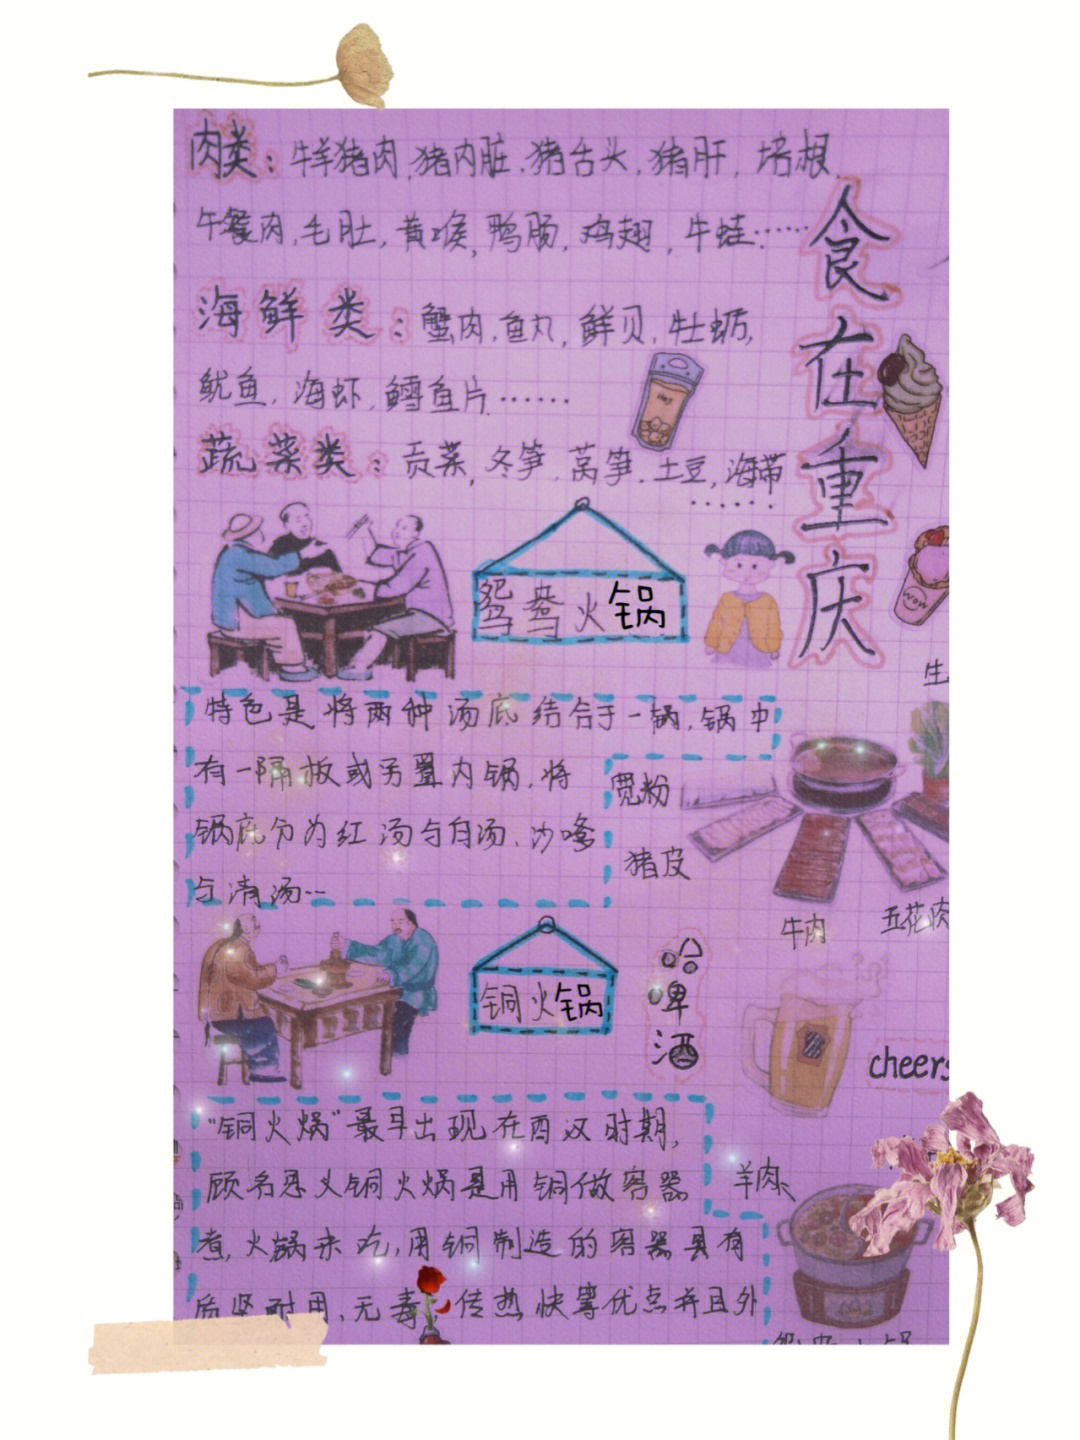 食在重庆
肉类：牛羊猪肉,猪内脏,猪舌头,猪肝,培根,
午餐肉,毛肚,黄喉,鸭肠,鸡翅,牛蛙……
海鲜类：蟹肉,鱼丸,鲜贝,牡蛎,
鱿鱼,海虾,鳕鱼片……
蔬菜类：贡菜,冬笋,莴笋,土豆,海带
……
鸳鸯火锅
wow
生
特色是将两种汤底结合于一锅,锅中
有一隔板或另置内锅,将
锅底分为红汤与白汤、沙嗲
与清汤……
宽粉
猪皮
牛肉
五花肉
铜火锅
哈啤酒
cheers
“铜火煱”最早出现在西汉时期,
顾名思义铜火煱是用铜做容器
煮,火锅来吃,用铜制造的容器具有
质坚耐用、无毒、传热快等优点并且外
羊肉
鸳鸯火锅